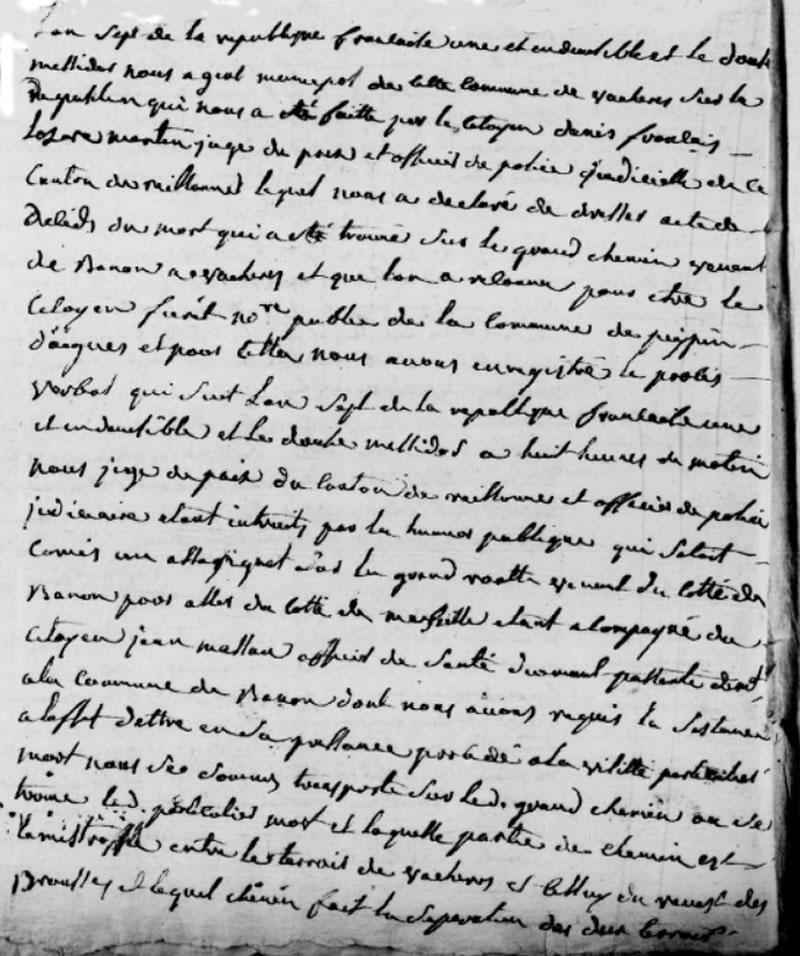 Lan sept de la republique francaise une et indivisible et le douse
messidor nous agent municipal de cette Commune de vacheres sur la
requisition qui nous a été faitte par le Citoyen denis francois
Lazare martin juge de paix et officier de police judicielle de ce
Canton de reillannes lequel nous a declaré de dresser acte de
deceds du mort qui a été trouvé sur le grand chemin venant
de Banon a vacheres et que lon a reconnu pour etre le
Citoyen no.re public de la Commune de peypin
daigues et pour cella nous avons enregistré le proces
verbal qui suit Lan sept de la republique francaise une
et indivisible et le douse messidor a huit heures du matin
nous juge de paix du Canton de reillannes et officier de police
judiciaire etant intruits par la rumeur publique qui setait
Comis un assassignat sur le grand routte venant du cotté de
Banon pour aller du cotté de marseille etant acompagné du
Citoyen jean officier de santé patenté
a la Commune de Banon dont nous avons requis la
a leffet dettre en sa presance procedé a la visitte particulier
mort nous sommes transporté sur led. grand chemin ou se
trouve led. particulier mort et laquelle partie de chemin est
entre le terroir de vacheres et celluy du revest des
Brousses et lequel chemin fait la separation des deux terroirs